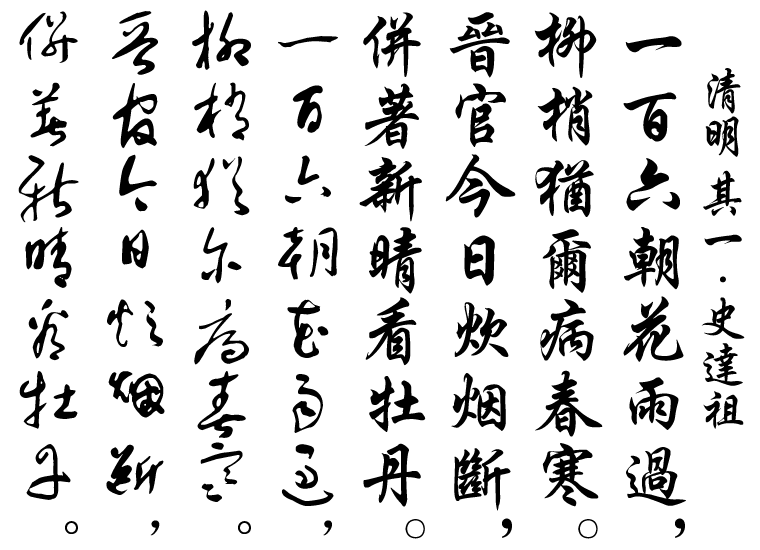 清明 其一·史達祖
一百六朝花雨過，
柳梢猶爾病春寒。
晉官今日炊烟斷，
併著新晴看牡丹。
一百六朝花雨過，
柳梢猶尔病春寒。
晉官今日炊烟断，
併著新晴看牡丹。